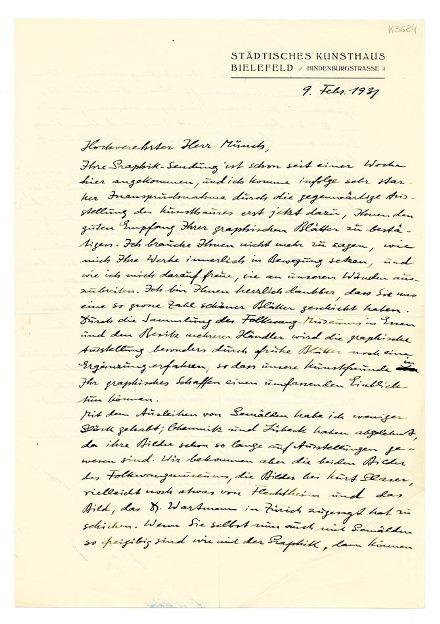 K3684
STÄDTISCHES KUNSTHAUS
BIELEFELD / HINDENBURGSTRASSE
9. Febr. 1931
Hochverehrter Herr Munch,
Ihre Graphik-Sendung ist schon seit einer Woche
hier angekommen, und ich komme infolge sehr star-
ker Inanspruchnahme durch die gegenwärtige Aus-
stellung des Kunsthauses erst jetzt dazu, Ihnen den
guten Empfang Ihrer graphischen Blätter zu bestä-
tigen. Ich brauche Ihnen nicht mehr zu sagen, wie
mich Ihre Werke innerlich in Bewegung setzen, und
wie ich mich darauf freue, sie an unseren Wänden aus-
zubreiten. Ich bin Ihnen herzlich dankbar, dass Sie uns
eine so grosse Zahl schöner Blätter geschickt haben.
Durch die Sammlung des Folkwang-Museums in Essen
und den Besitz mehrerer Händler wird die graphische
Ausstellung besonders durch frühe Blätter noch eine
Ergänzung erfahren, so dass unsere Kunstfreunde in
Ihr graphisches Schaffen einen umfassenden Einblick
tun können.
Mit dem Ausleihen von Gemälden habe ich weniger
Glück gehabt; Chemnitz und Lübeck haben abgelehnt,
da ihre Bilder schon so lange auf Ausstellungen ge-
wesen sind. Wir bekommen aber die beiden Bilder
des Folkwangmuseums, die Bilder bei Kurt Glaser,
vielleicht noch etwas von Flechtheim und das
Bild, das Dr. Wartmann in Zürich zugesagt hat zu
schicken. Wenn Sie selbst nun auch mit Gemälden
so freigibig sind wie mit der Graphik, dann können